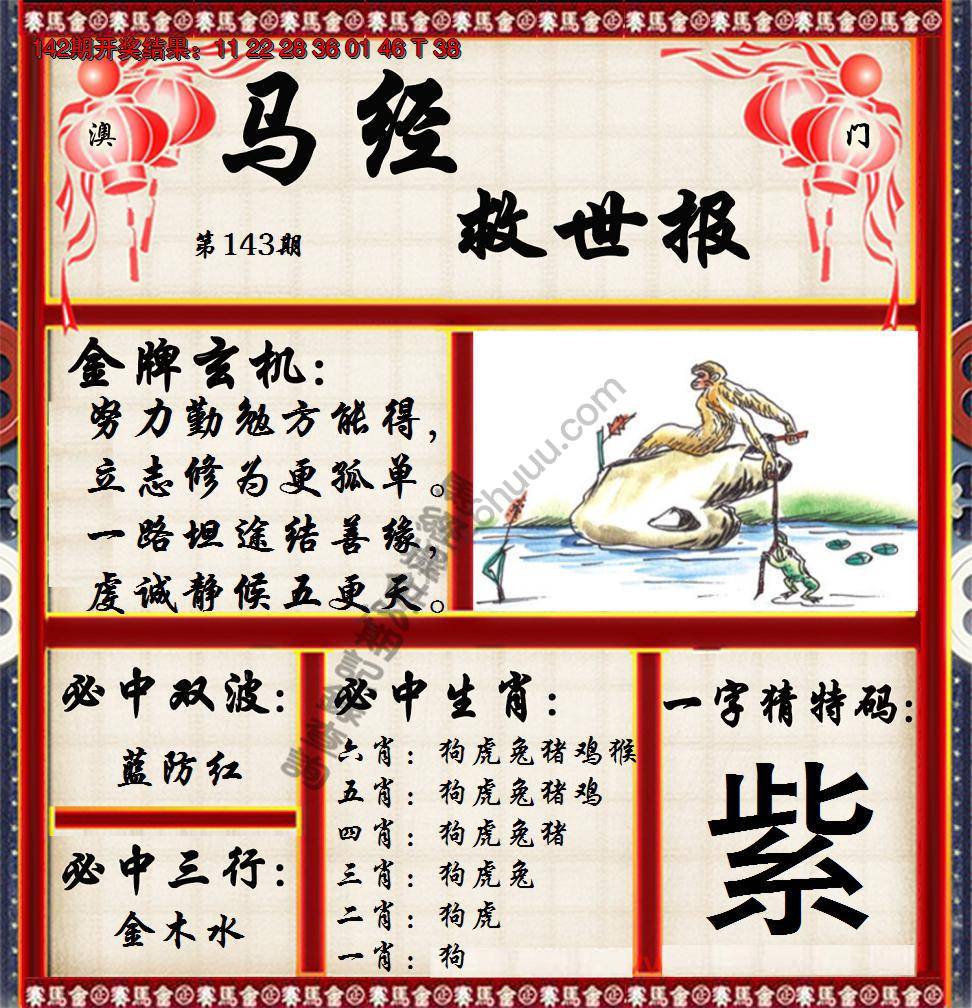 142期开奖结果：11 22 28 36 01 46 T 38
澳
门
马经
救世报
第143期
金牌玄机：
努力勤勉方能得，
立志修为更孤单。
一路坦途结善缘，
虔诚静候五更天。
必中双波：
蓝防红
必中三行：
金木水
必中生肖：
六肖：狗虎兔猪鸡猴
五肖：狗虎兔猪鸡
四肖：狗虎兔猪
三肖：狗虎兔
二肖：狗虎
一肖：狗
一字猜特码：
紫